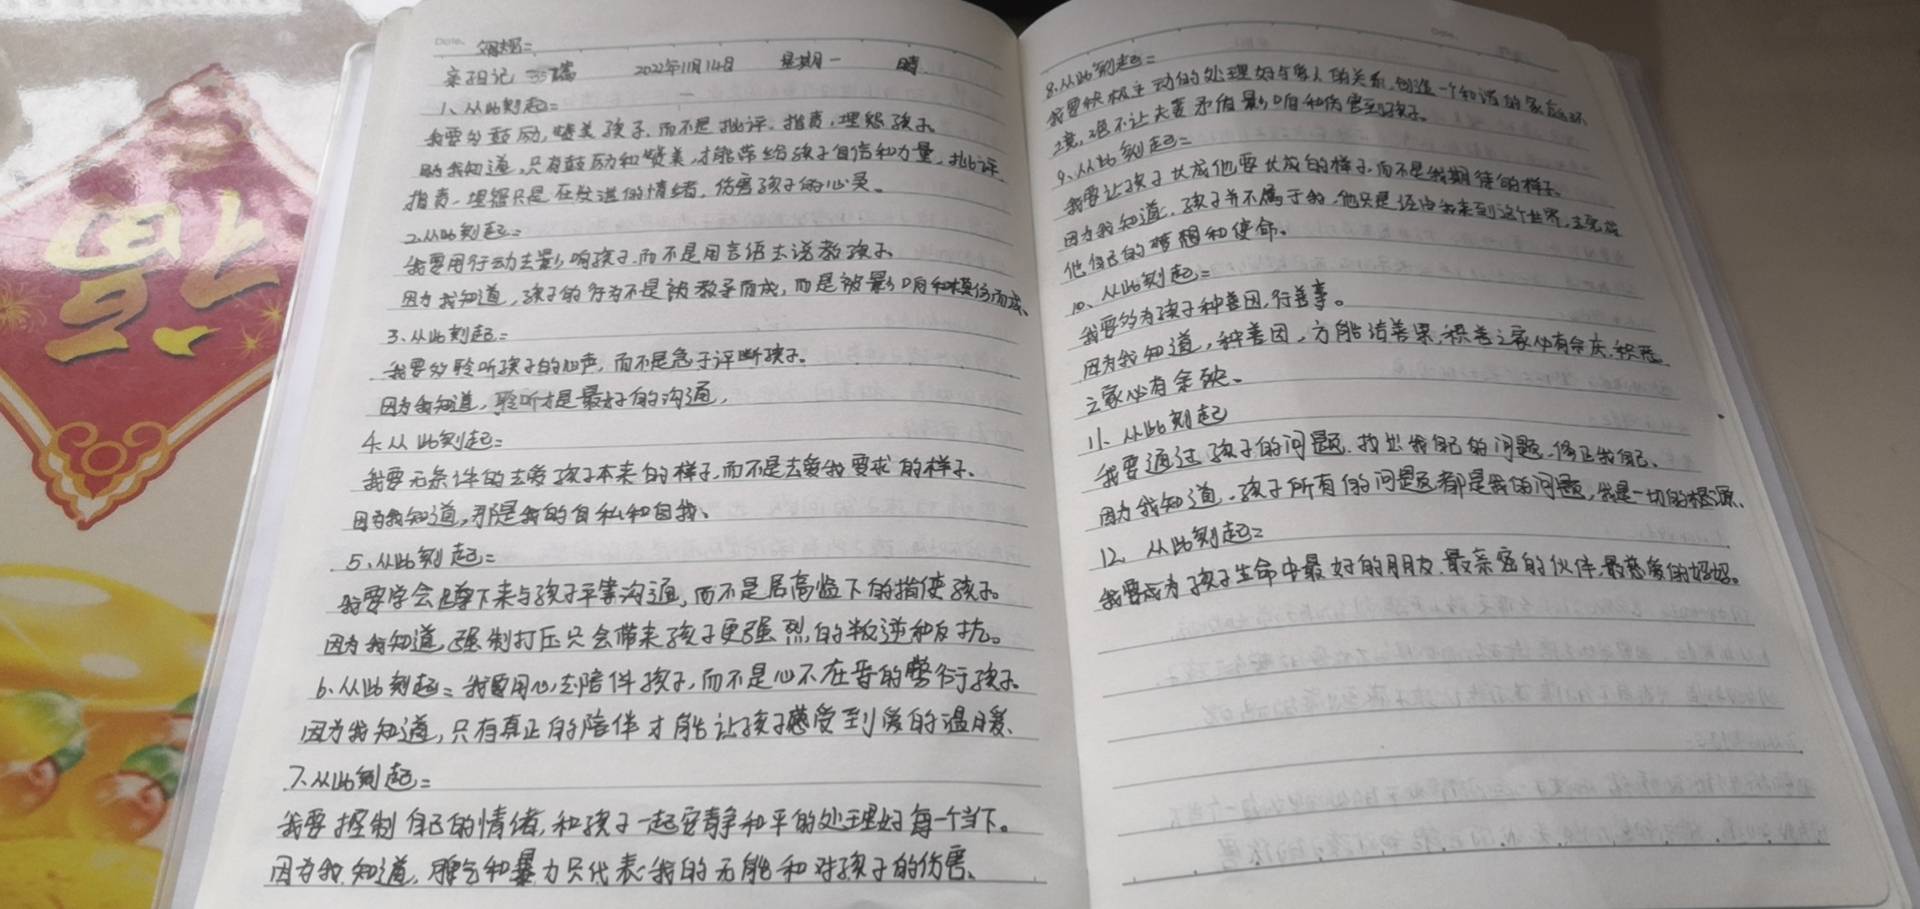 Date.
亲担记 2022年11月14日 星期一 晴
1、从此刻起=
我要多鼓励,赞美孩子,而不是批评、指责,埋怨孩子。
因我知道,只有鼓励和赞美,才能带给孩子自信和力量,批评、
指责、埋怨只是在发泄的情绪,伤害孩子的心灵。
2.从此刻起=
我要用行动去影响孩子,而不是用言语去说教孩子
因为我知道,孩子的行为不是被教导而成,而是被影响和模仿而成、
3、从此刻起=
我要多聆听孩子的心声,而不是急于评断孩子。
因为我知道,聆听才是最好的沟通,
4、从此刻起=
我要无条件的去爱孩子本来的样子,而不是去爱我要求的样子、
因为我知道,那是我的自私和自我、
5、从此刻起=
我要学会蹲下来与孩子平等沟通,而不是居高临下的指使孩子。
因为我知道,强制打压只会带来孩子更强烈的叛逆和反抗。
6、从此刻起=我要用心去陪伴孩子,而不是心不在焉的敷衍孩子、
因为我知道,只有真正的陪伴才能让孩子感受到爱的温暖、
7、从此刻起=
我要控制自己的情绪,和孩子一起安静和平的处理好每一个当下。
因为我知道,脾气和暴力只代表我的无能和对孩子的伤害、
Date.
8、从此刻起=
我要积极主动的处理好与家人的关系,创造一个和谐的家庭环
境,绝不让夫妻矛盾影响和伤害到孩子。
9、从此刻起=
我要让孩子长成他要长成的样子,而不是我期待的样子。
因为我知道,孩子并不属于我,他只是经由我来到这个世界,去完成
他自己的梦想和使命。
10、从此刻起=
我要多为孩子种善因,行善事。
因为我知道,种善因,方能结善果,积善之家必有余庆,积恶
之家必有余殃、
11、从此刻起
我要通过孩子的问题,找出我自己的问题,修正我自己、
因为我知道,孩子所有的问题都是我的问题,我是一切的根源、
12、从此刻起=
我要成为孩子生命中最好的朋友,最亲密的伙伴,最慈爱的妈妈。